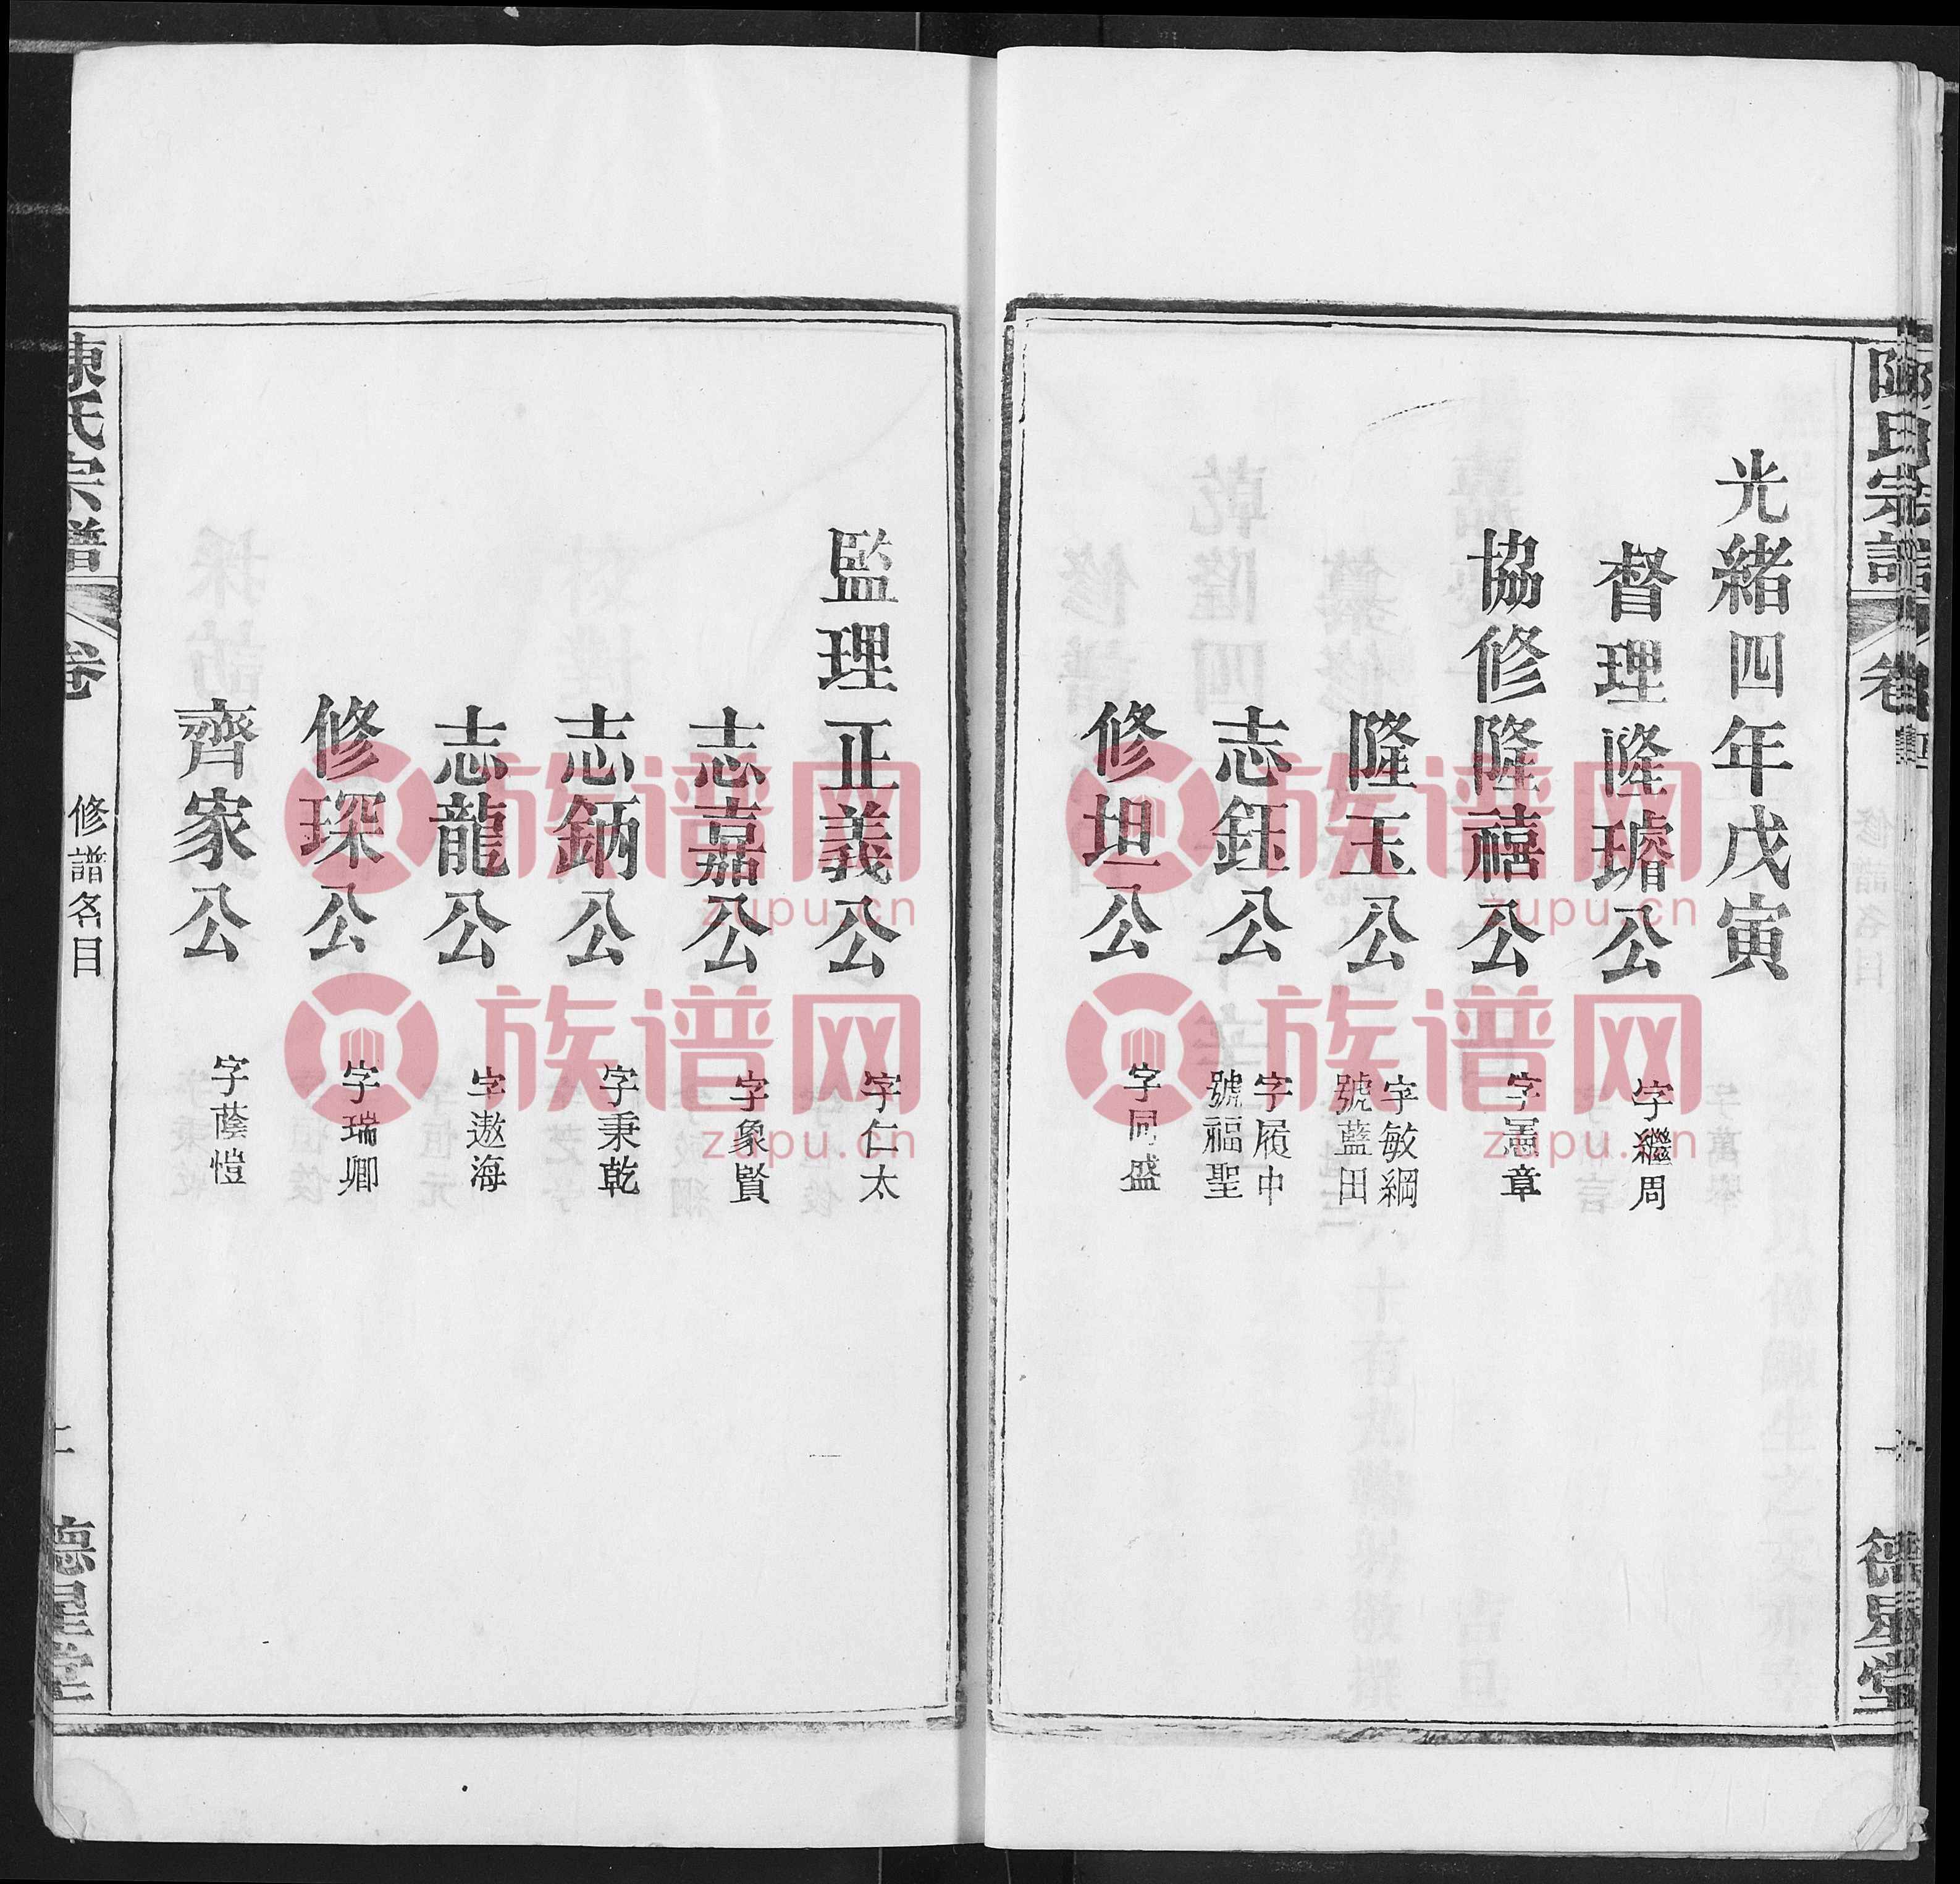 光緒四年戊寅
督理隆璿公 字繼周
協修隆禧公 字憲章
隆玉公 字敏綱 號藍田
志鈺公 字履中 號福聖
修坦公 字同盛
監理正義公 字仁太
志嘉公 字象賢
志鈵公 字秉乾
志龍公 字遨海
修琛公 字瑞卿
齊家公 字蔭愷
陳氏宗譜 卷 修譜名目 德星堂
族谱网
zupu.cn
族谱网
zupu.cn
族谱网
zupu.cn
族谱网
zupu.cn